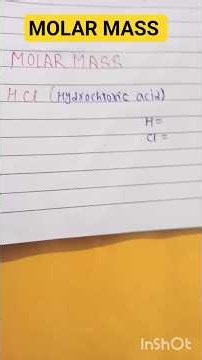 MOLAR MASS
MOLAR MASS
HCl (Hydrochloric acid)
H =
Cl =
InShOt